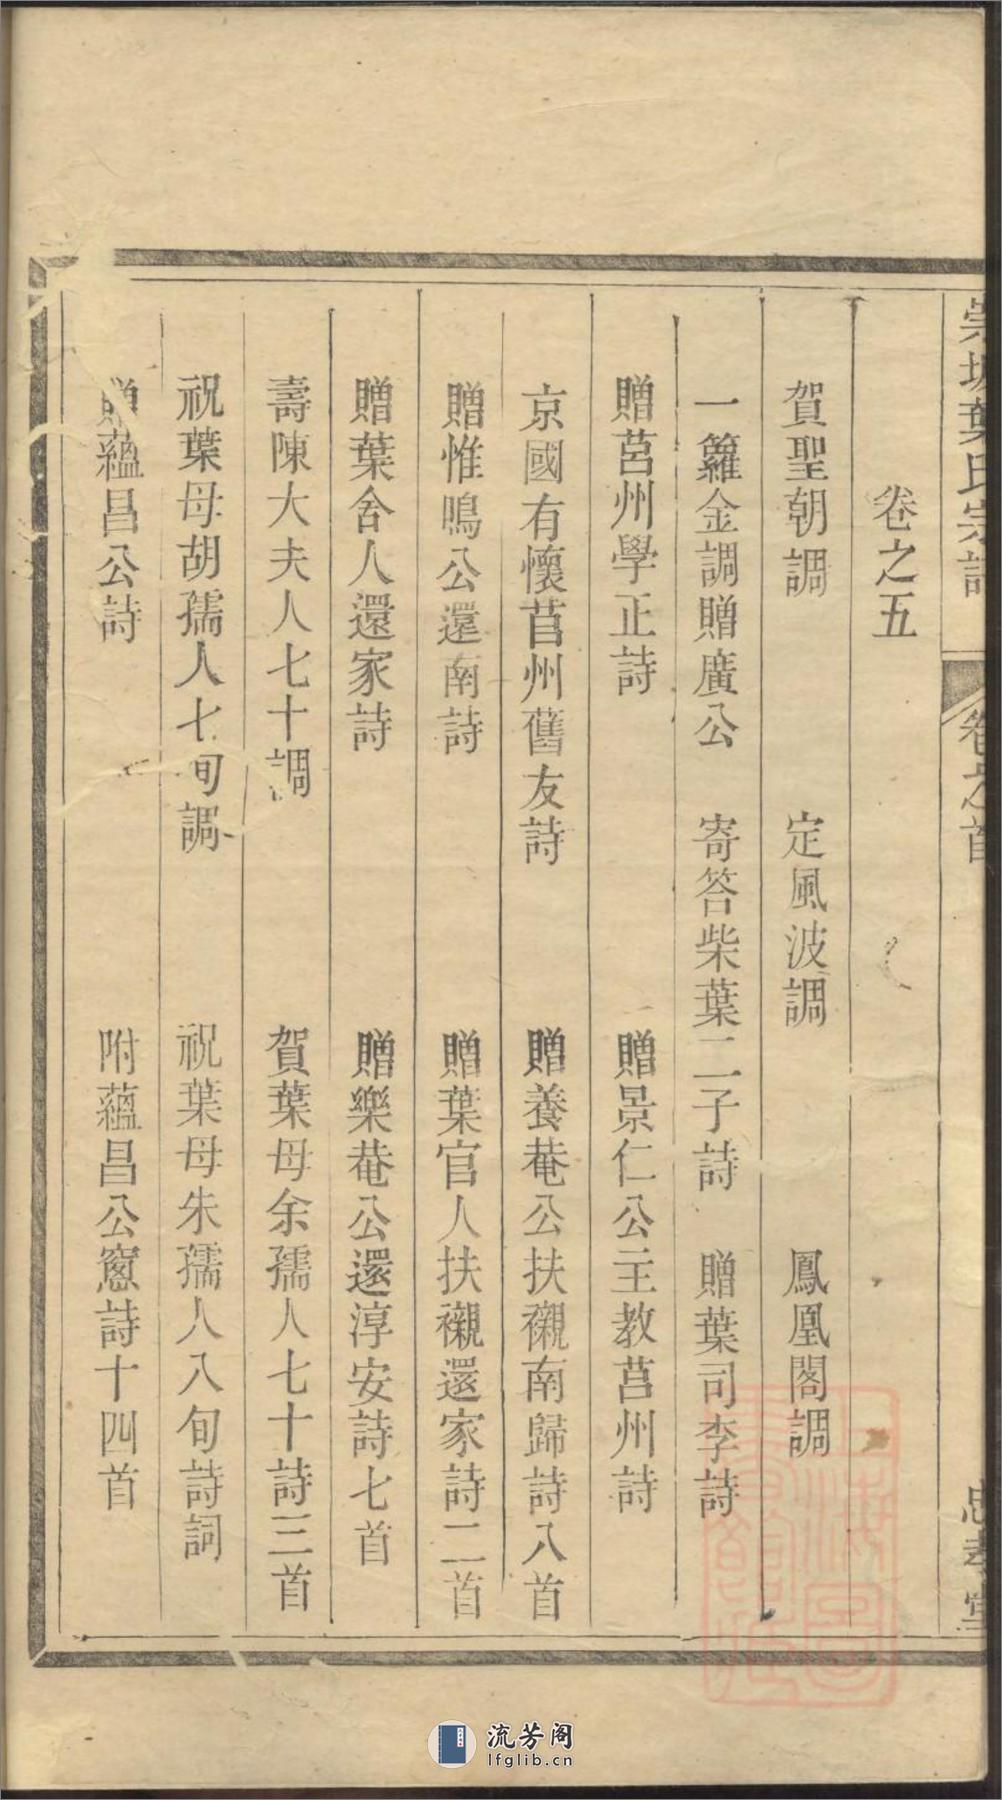 崇坡葉氏宗譜 卷之首 忠孝堂
卷之五
賀聖朝調 定風波調 鳳凰閣調
一籮金調贈廣公 寄答柴葉二子詩 贈葉司李詩
贈莒州學正詩 贈景仁公主教莒州詩
京國有懷莒州舊友詩 贈養菴公扶櫬南歸詩八首
贈惟鳴公還南詩 贈葉官人扶櫬還家詩二首
贈葉舍人還家詩 贈樂菴公還淳安詩七首
壽陳大夫人七十調 賀葉母余孺人七十詩三首
祝葉母胡孺人七旬調 祝葉母朱孺人八旬詩詞
贈蘊昌公詩 附蘊昌公窻詩十四首
流芳阁
lfglib.cn